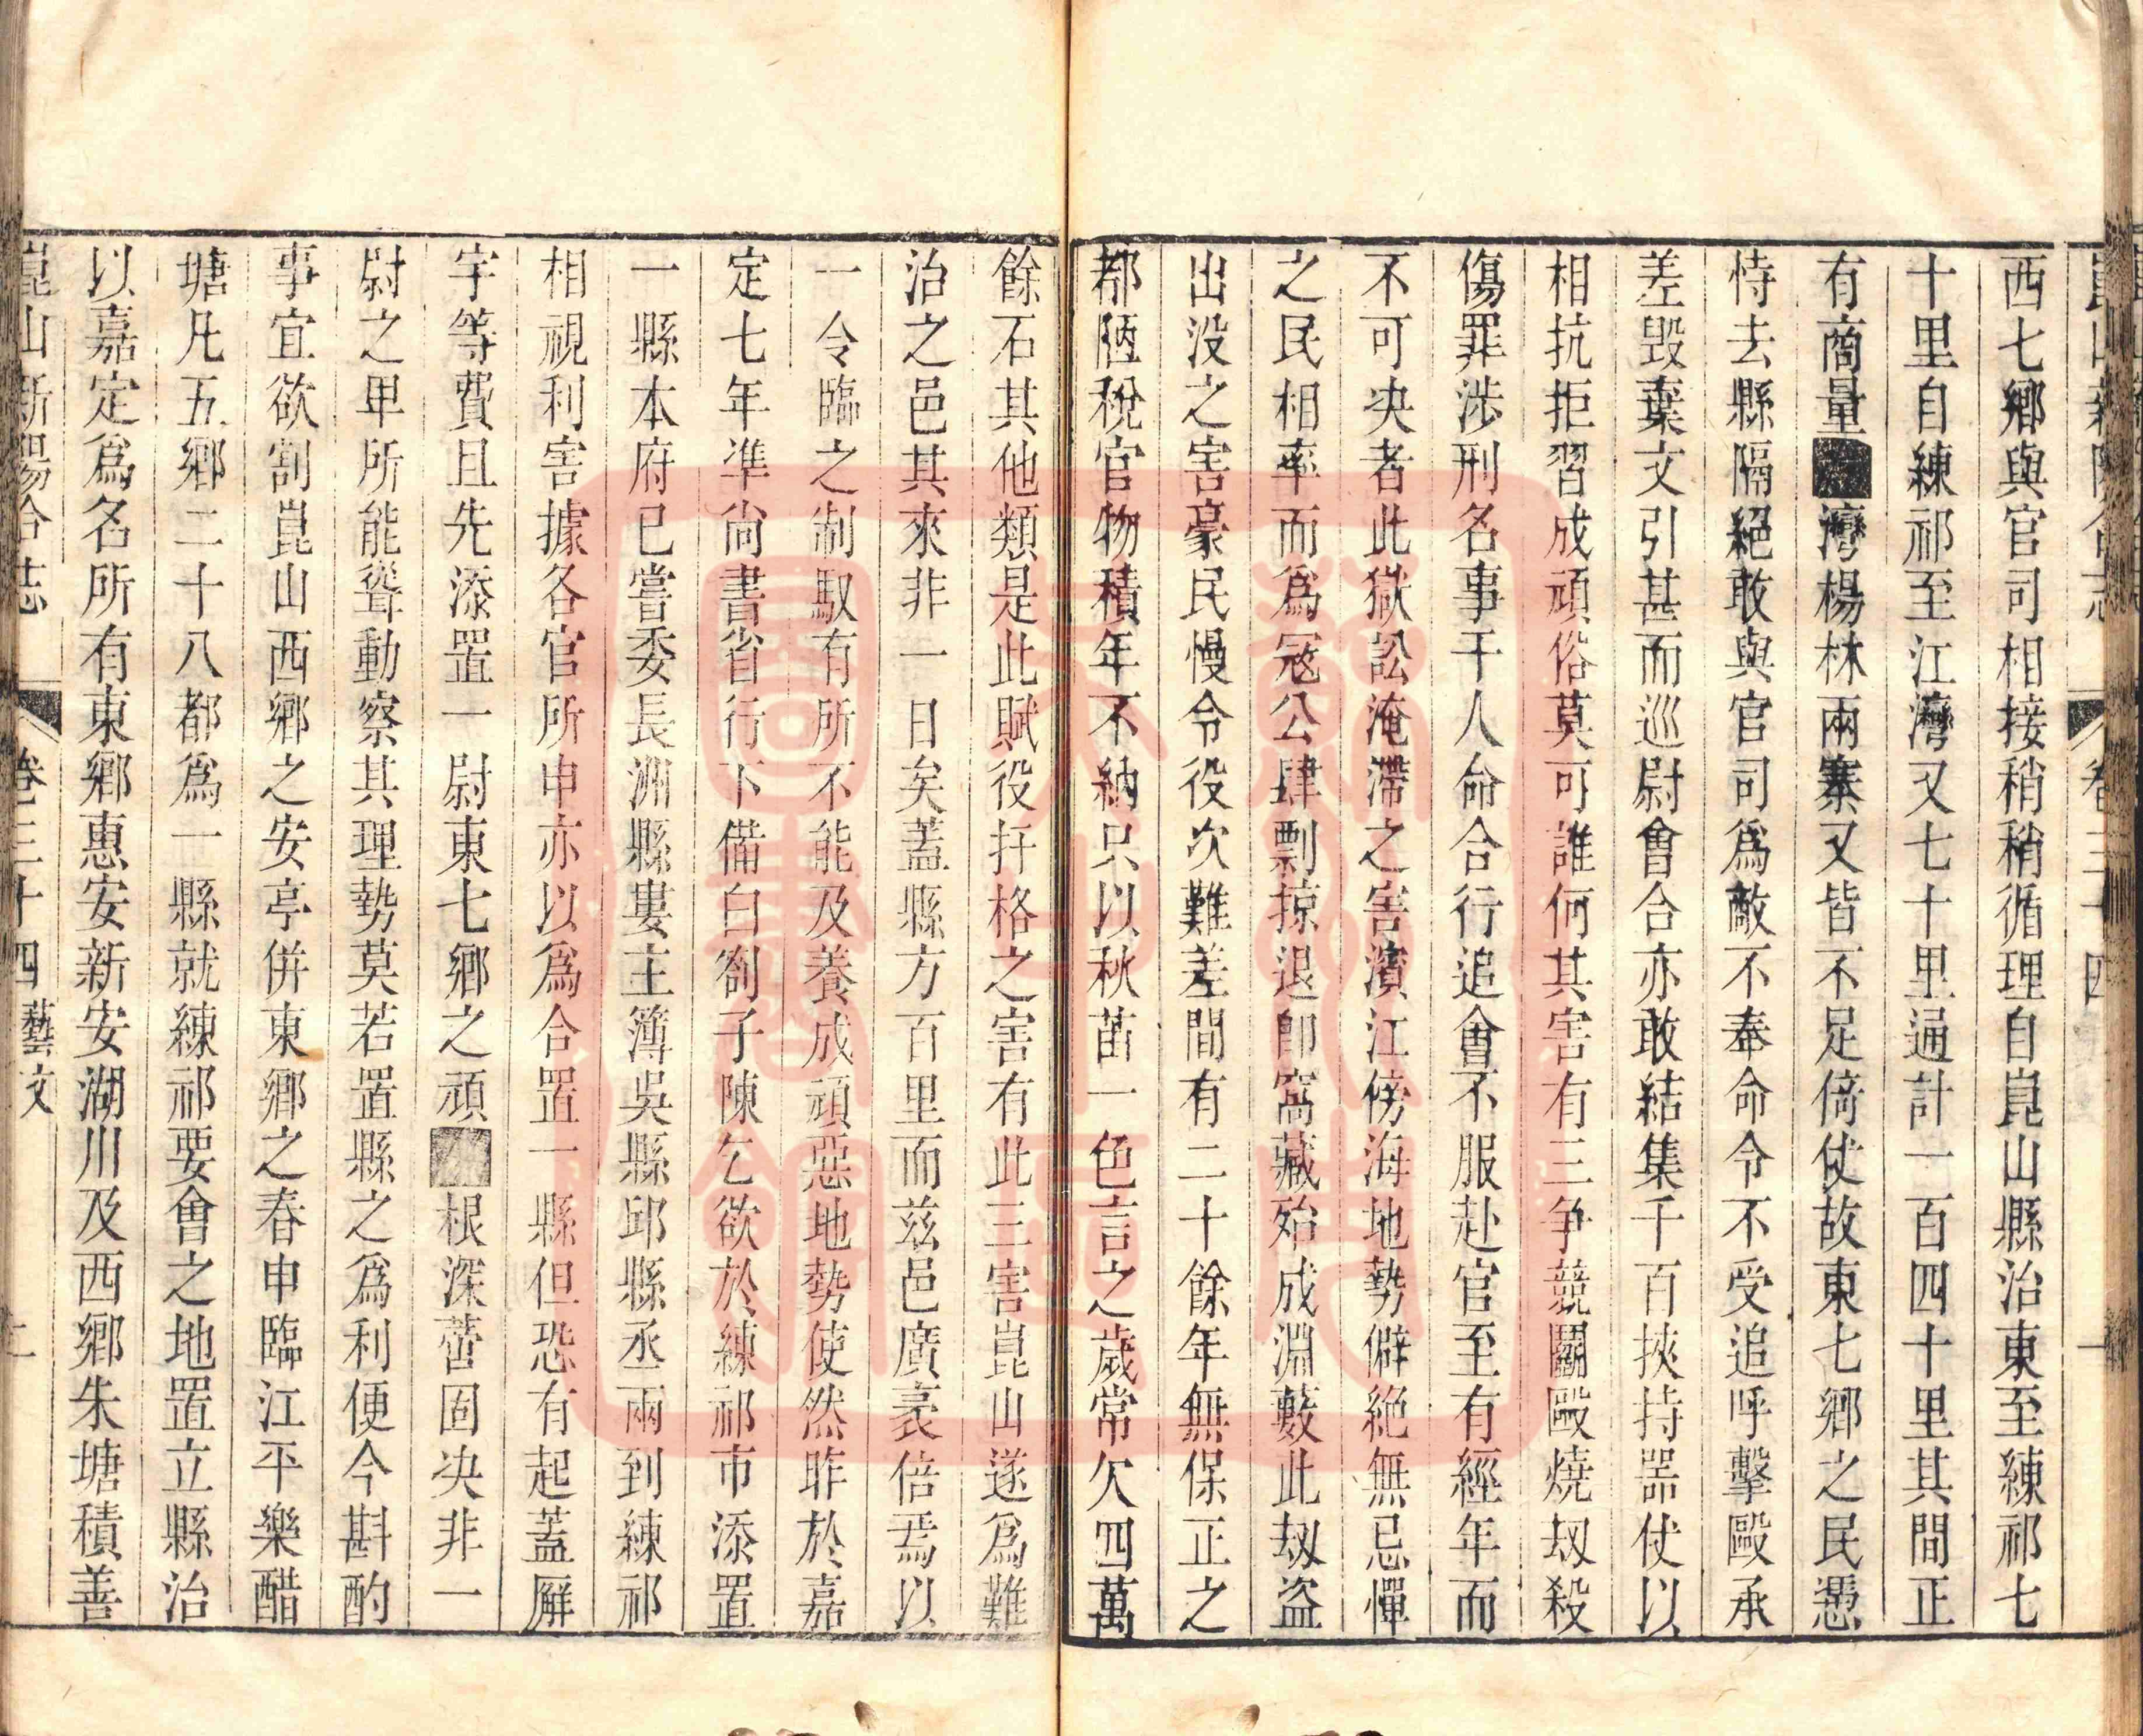 崑山新陽合志 卷三十四 一
西七鄉與官司相接稍稍循理自崑山縣治東至練祁七
十里自練祁至江灣又七十里通計一百四十里其間正
有商量灣楊林兩寨又皆不足倚仗故東七鄉之民憑
恃去縣隔絕敢與官司為敵不奉命令不受追呼擊毆承
差毀棄文引甚而巡尉會合亦敢結集千百挾持器仗以
相抗拒習成頑俗莫可誰何其害有三爭競鬭毆燒刼殺
傷罪涉刑名事干人命合行追會不服赴官至有經年而
不可决者此獄訟淹滯之害濱江傍海地勢僻絕無忌憚
之民相率而爲冦公肆剽掠退卽窩藏殆成淵藪此刼盜
出沒之害豪民慢令役次難差間有二十餘年無保正之
都陋稅官物積年不納只以秋苗一色言之歲常欠四萬
餘石其他類是此賦役扞格之害有此三害崑山遂爲難
治之邑其來非一日矣蓋縣方百里而兹邑廣袤倍焉以
一令臨之制馭有所不能及養成頑惡地勢使然昨於嘉
定七年準尚書省行下備白劄子陳乞欲於練祁市添置
一縣本府已嘗委長洲縣婁主簿吳縣邱縣丞兩到練祁
相視利害據各官所申亦以爲合置一縣但恐有起蓋廨
宇等費且先添置一尉東七鄉之頑根深蔕固决非一
尉之卑所能聳動察其理勢莫若置縣之爲利便今斟酌
事宜欲割崑山西鄉之安亭併東鄉之春申臨江平樂醋
塘凡五鄉二十八都爲一縣就練祁要會之地置立縣治
以嘉定爲名所有東鄉惠安新安湖川及西鄉朱塘積善
崑山新陽合志 卷三十四 藝文 二